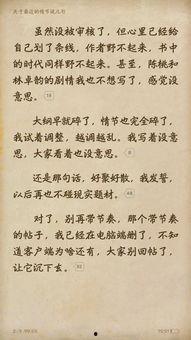 关于最近的情节说几句
虽然没被审核了，但心里已经给
自己划了条线，作者野不起来，书中
的时代同样野不起来。甚至，陈桃和
林卓韵的剧情我也不想写了，感觉没
意思。
18
大纲早就碎了，情节也完全碎了，
我试着调整，越调越乱。我写着没意
思，大家看着也没意思。
8
还是那句话，好聚好散，我发誓，
以后再也不碰现实题材。
48
对了，别再带节奏，那个带节奏
的帖子，我已经在电脑端删了，不知
道客户端为啥还有，大家别回帖了，
让它沉下去。
32